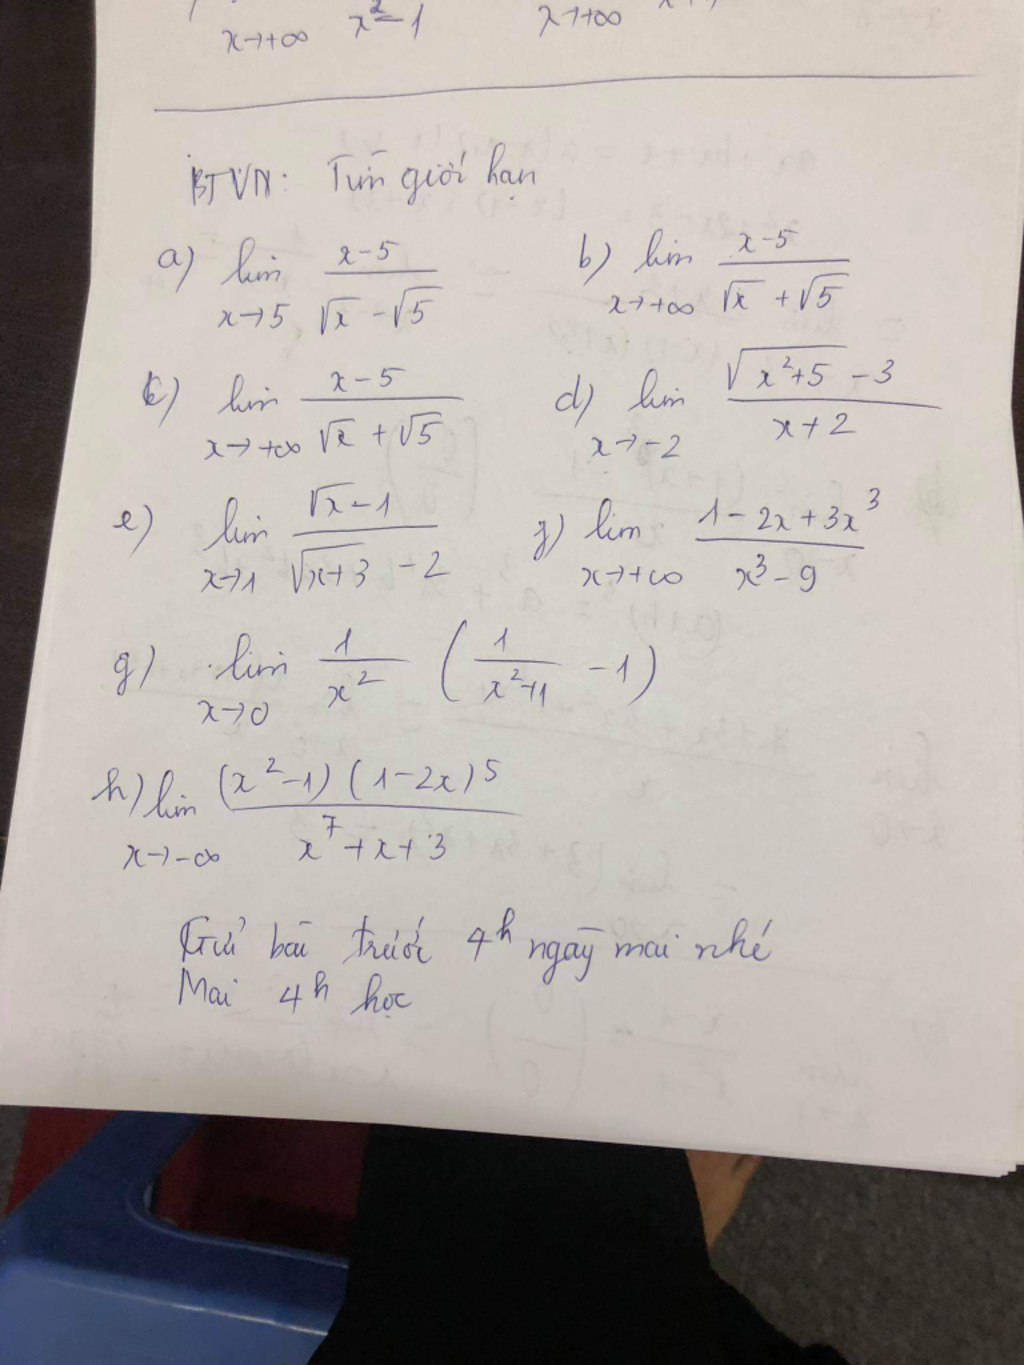 x→+∞ x²-1 x→+∞
BTVN: Tìm giới hạn
a) lim x→5 (x-5)/(√x - √5) b) lim x→+∞ (x-5)/(√x + √5)
c) lim x→+∞ (x-5)/(√x + √5) d) lim x→-2 (√(x²+5) - 3)/(x+2)
e) lim x→1 (√x - 1)/(√(x+3) - 2) f) lim x→+∞ (1-2x+3x³)/(x³-9)
g) lim x→0 1/x² (1/(x²+1) - 1)
h) lim x→-∞ (x²-1)(1-2x)⁵/(x⁷+x+3)
Gửi bài trước 4h ngày mai nhé
Mai 4h học